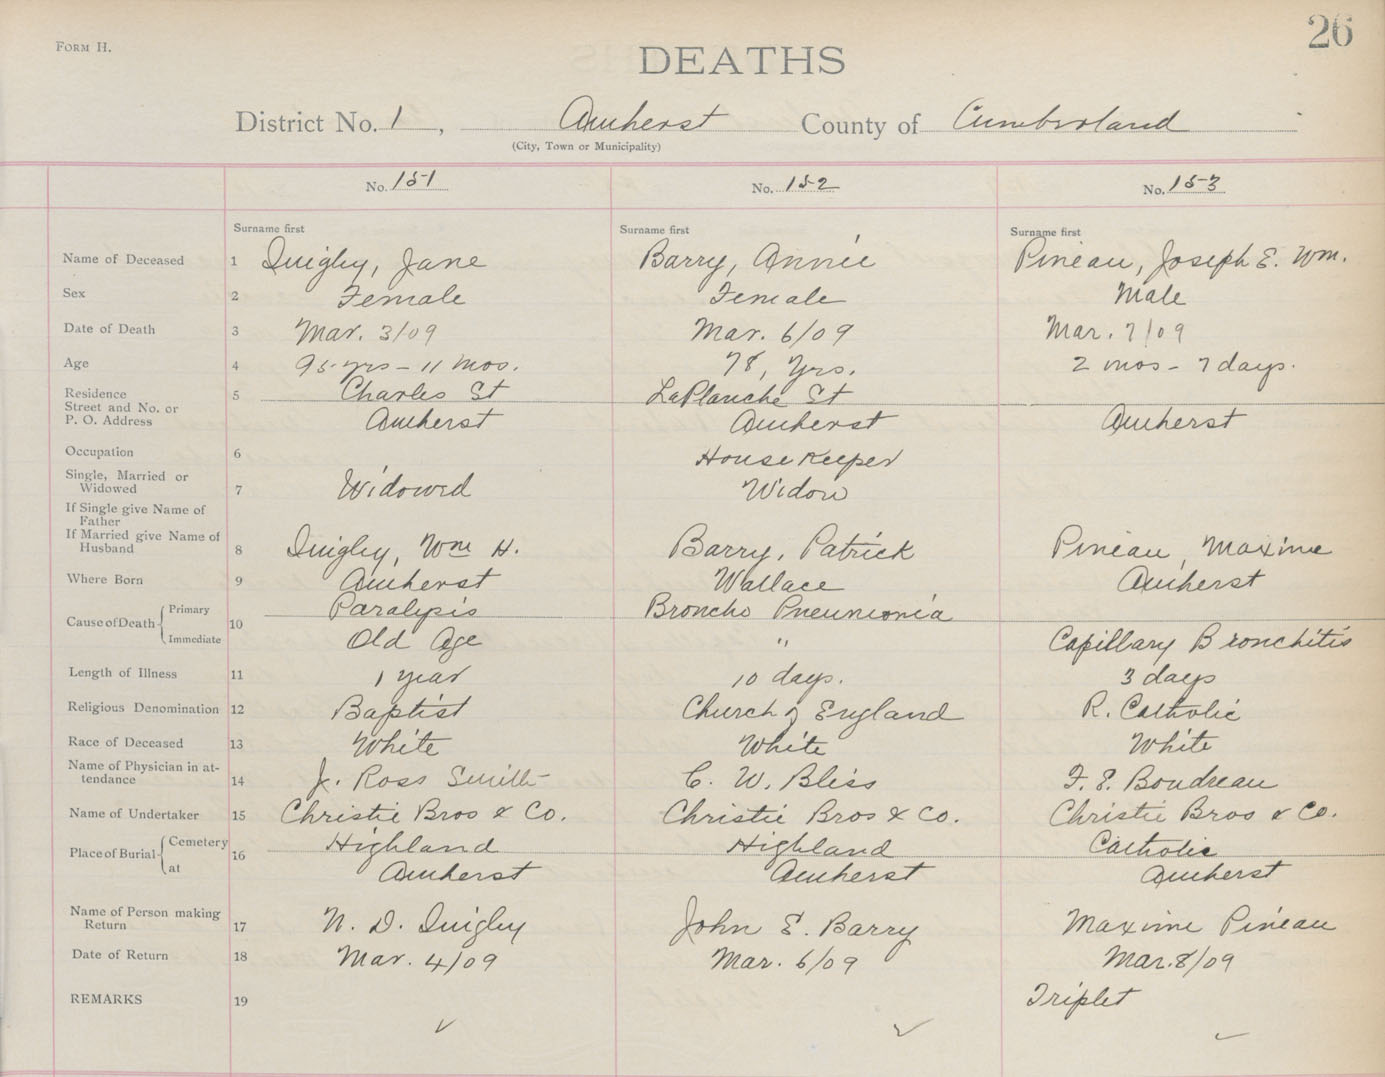 26
FORM H.
DEATHS
District No. 1, Amherst County of Cumberland
(City, Town or Municipality)
No. 151 No. 152 No. 153
Surname first Surname first Surname first
Name of Deceased 1 Quigley, Jane Barry, Annie Pineau, Joseph E. Wm.
Sex 2 Female Female Male
Date of Death 3 Mar. 3/09 Mar. 6/09 Mar. 7/09
Age 4 95 yrs - 11 mos. 78, Yrs. 2 mos - 7 days.
Residence 5 Charles St LaPlanche St
Street and No. or
P. O. Address Amherst Amherst Amherst
Occupation 6 House Keeper
Single, Married or
Widowed 7 Widowed Widow
If Single give Name of
Father
If Married give Name of
Husband 8 Quigley, Wm H. Barry, Patrick Pineau, Maxime
Where Born 9 Amherst Wallace Amherst
Cause of Death Primary 10 Paralysis Broncho Pneumonia
Immediate Old Age " Capillary Bronchitis
Length of Illness 11 1 year 10 days. 3 days
Religious Denomination 12 Baptist Church of England R. Catholic
Race of Deceased 13 White White White
Name of Physician in at-
tendance 14 J. Ross Smith C. W. Bliss F. E. Boudreau
Name of Undertaker 15 Christie Bros & Co. Christie Bros & Co. Christie Bros & Co.
Place of Burial Cemetery 16 Highland Highland Catholic
at Amherst Amherst Amherst
Name of Person making
Return 17 N. D. Quigley John E. Barry Maxime Pineau
Date of Return 18 Mar. 4/09 Mar. 6/09 Mar. 8/09
REMARKS 19 Triplet